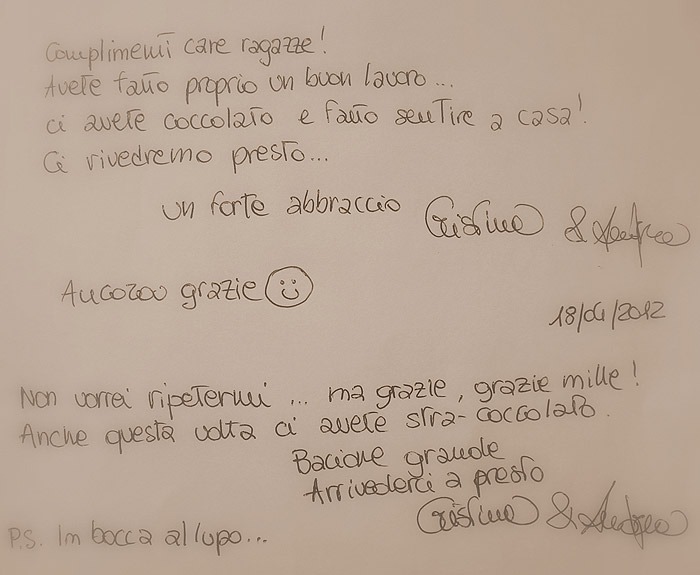 Complimenti care ragazze!
Avete fatto proprio un buon lavoro...
ci avete coccolato e fatto sentire a casa!
Ci rivedremo presto...
un forte abbraccio Cristina & Andrea
Ancoraaa grazie
18/04/2012
Non vorrei ripetermi ... ma grazie, grazie mille!
Anche questa volta ci avete stra-coccolato.
Bacione grande
Arrivederci a presto
Cristina & Andrea
P.S. In bocca al lupo...